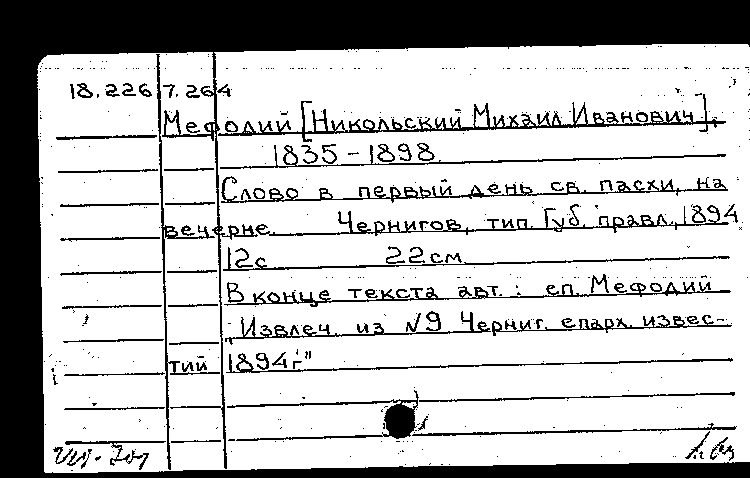 18.226 7.264
Мефодий [Никольский Михаил Иванович],
1835-1898.
Слово в первый день св. пасхи, на
вечерне. Чернигов, тип. Губ. правл., 1894
12с 22см.
В конце текста авт.: еп. Мефодий
"Извлеч. из №9 Черниг. епарх. извес-
тий 1894г."